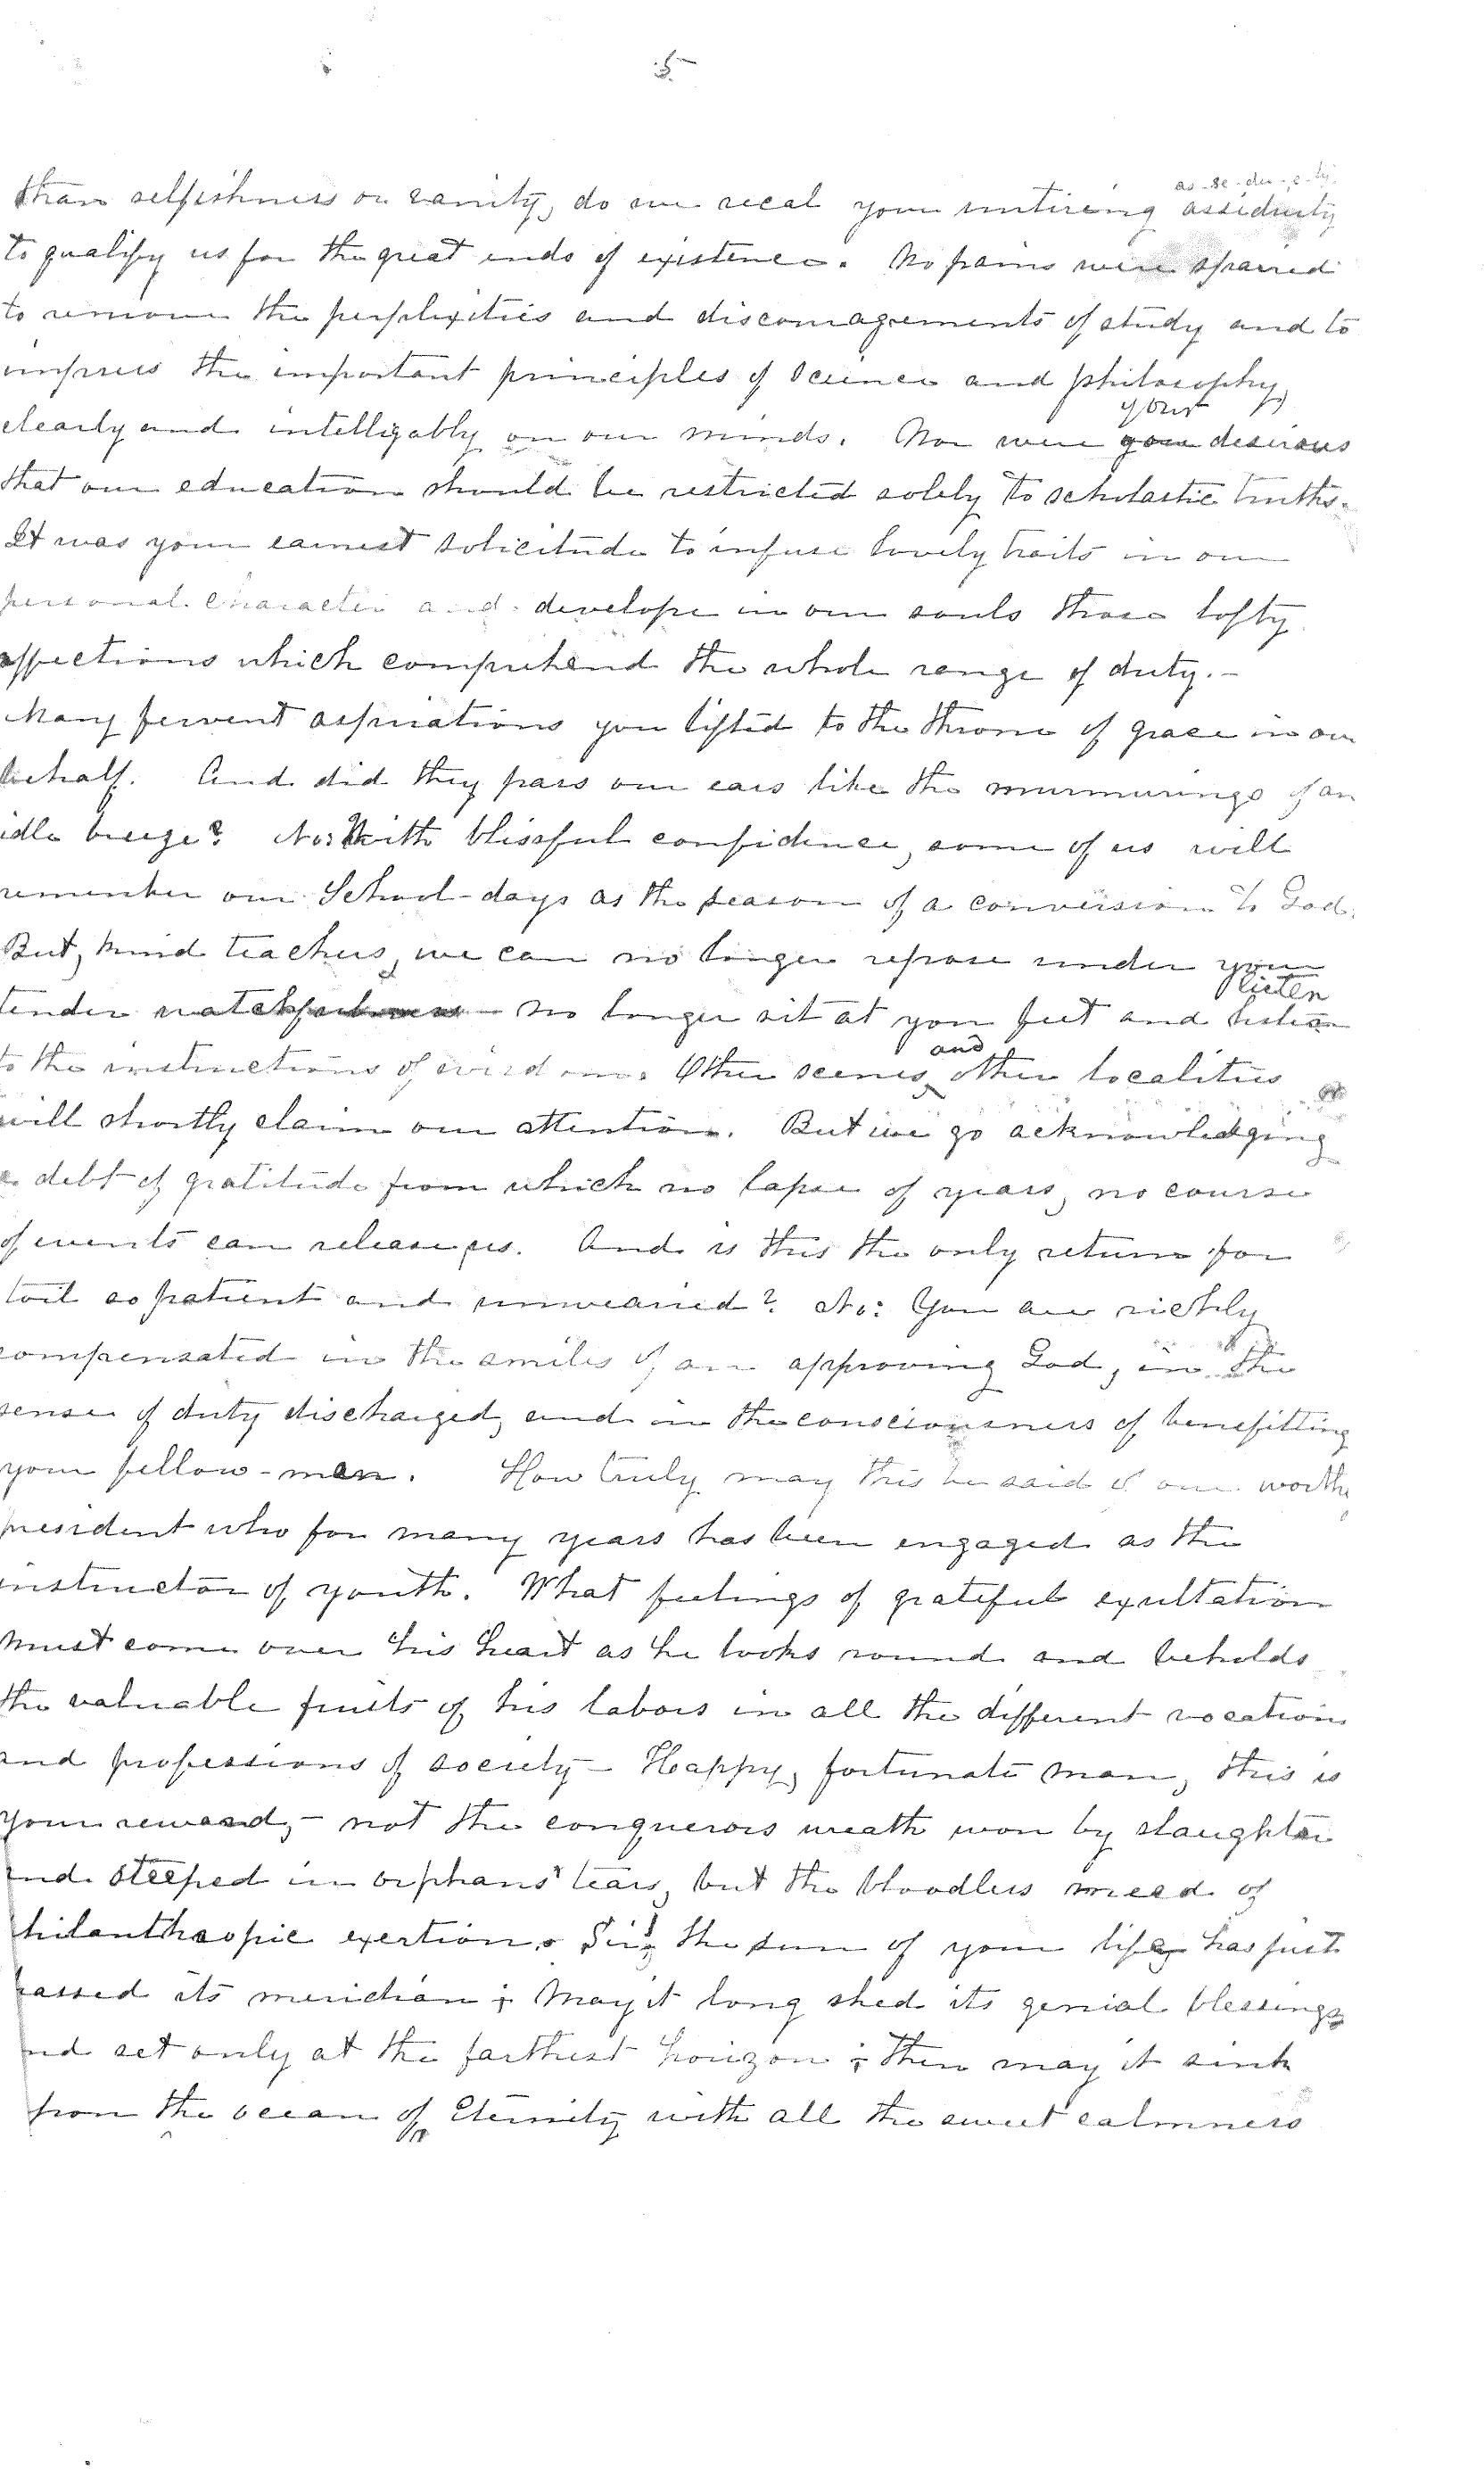 5
as-se-du-i-ty
than selfishness or vanity, do we recal your untireing assiduity
to qualify us for the great ends of existence. No pains were spaired
to remove the perplexities and discouragements of study and to
impress the important principles of Science and philosophy,
your
clearly and intelligably on our minds. Nor were you desirous
that our education should be restricted solely to scholastic truths.
It was your earnest solicitude to infuse lovely traits in our
personal character and develope in our souls those lofty
affections which comprehend the whole range of duty.-
Many fervent aspirations you lifted to the throne of grace in our
behalf. And did they pass our ears like the murmurings of an
idle breeze? No: With blissful confidence, some of us will
remember our School-days as the season of a conversion to God.
But, kind teachers, we can no longer repose under your
listen
tender watchfulness - no longer sit at you feet and listen
and
to the instructions of wisdom. Other scenes other localities
will shortly claim our attention. But we go acknowledging
a debt of gratitude from which no lapse of years, no course
of events can release us. And is this the only return for
toil so patient and unwearied? No: You are richly
compensated in the smiles of an approving God, in the
sense of duty discharged, and in the consciousness of benefitting
your fellow-men. How truly may this be said of our worthy
president who for many years has been engaged as the
instructor of youth. What feelings of grateful exultation
must come over his heart as he looks round and beholds
the valuable fruits of his labors in all the different vocations
and professions of society - Happy, fortunate man, this is
your reward, - not the conquerors wreath won by slaughter
and steeped in orphans' tears, but the bloodless meed of
hilanthropic exertion. Sir, the sun of your life has just
passed its meridian; May it long shed its genial blessings
nd set only at the farthest horizon; then may it sink
from the ocean of Eternity with all the sweet calmness